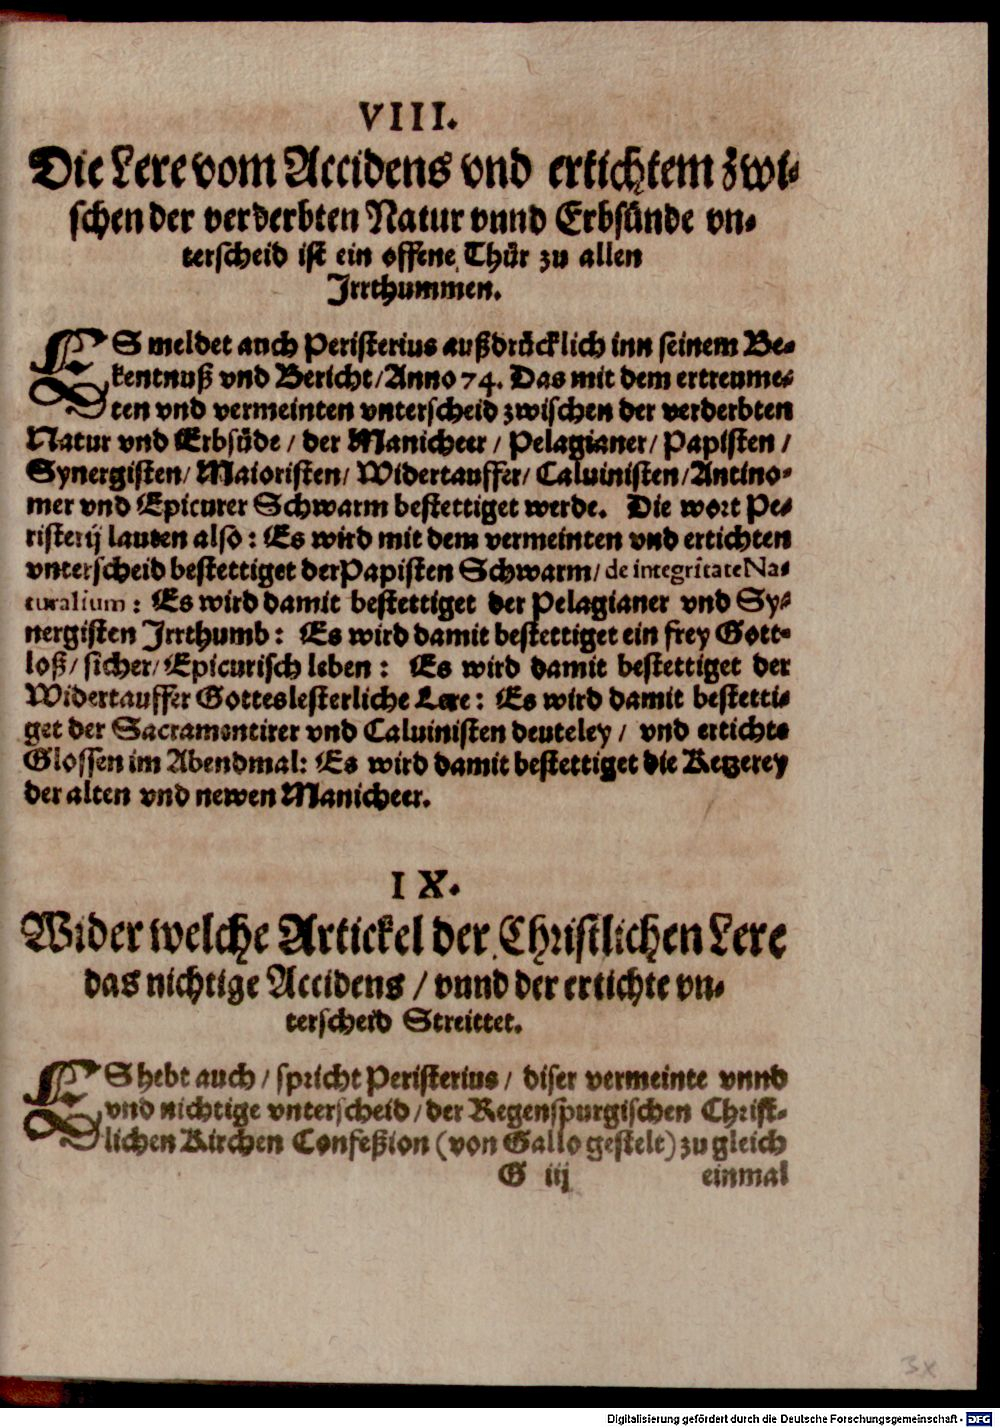 VIII.
Die Lere vom Accidens vnd ertichtem zwi-
schen der verderbten Natur vnnd Erbsünde vn-
terscheid ist ein offene Thür zu allen
Irrthummen.
ES meldet auch Peristerius außdrücklich inn seinem Be-
kentnuß vnd Bericht/Anno 74. Das mit dem ertreume-
ten vnd vermeinten vnterscheid zwischen der verderbten
Natur vnd Erbsüde / der Manicheer / Pelagianer/ Papisten /
Synergisten/ Maioristen/ Widertauffer/ Caluinisten/Antino-
mer vnd Epicurer Schwarm bestettiget werde. Die wort Pe-
risterij lauten also : Es wird mit dem vermeinten vnd ertichten
vnterscheid bestettiget der Papisten Schwarm/ de integritate Na-
turalium : Es wird damit bestettiget der Pelagianer vnd Sy-
nergisten Irrthumb : Es wird damit bestettiget ein frey Gott-
loß/ sicher/ Epicurisch leben : Es wird damit bestettiget der
Widertauffer Gotteslesterliche Lere : Es wird damit bestetti-
get der Sacramentirer vnd Caluinisten deuteley / vnd ertichte
Glossen im Abendmal: Es wird damit bestettiget die Ketzerey
der alten vnd newen Manicheer.
IX.
Wider welche Artickel der Christlichen Lere
das nichtige Accidens / vnnd der ertichte vn-
terscheid Streittet.
ES hebt auch / spricht Peristerius / diser vermeinte vnnd
vnd nichtige vnterscheid / der Regenspurgischen Christ-
lichen Kirchen Confeßion (von Gallo gestelt) zu gleich
G iij einmal
3x
Digitalisierung gefördert durch die Deutsche Forschungsgemeinschaft - DFG